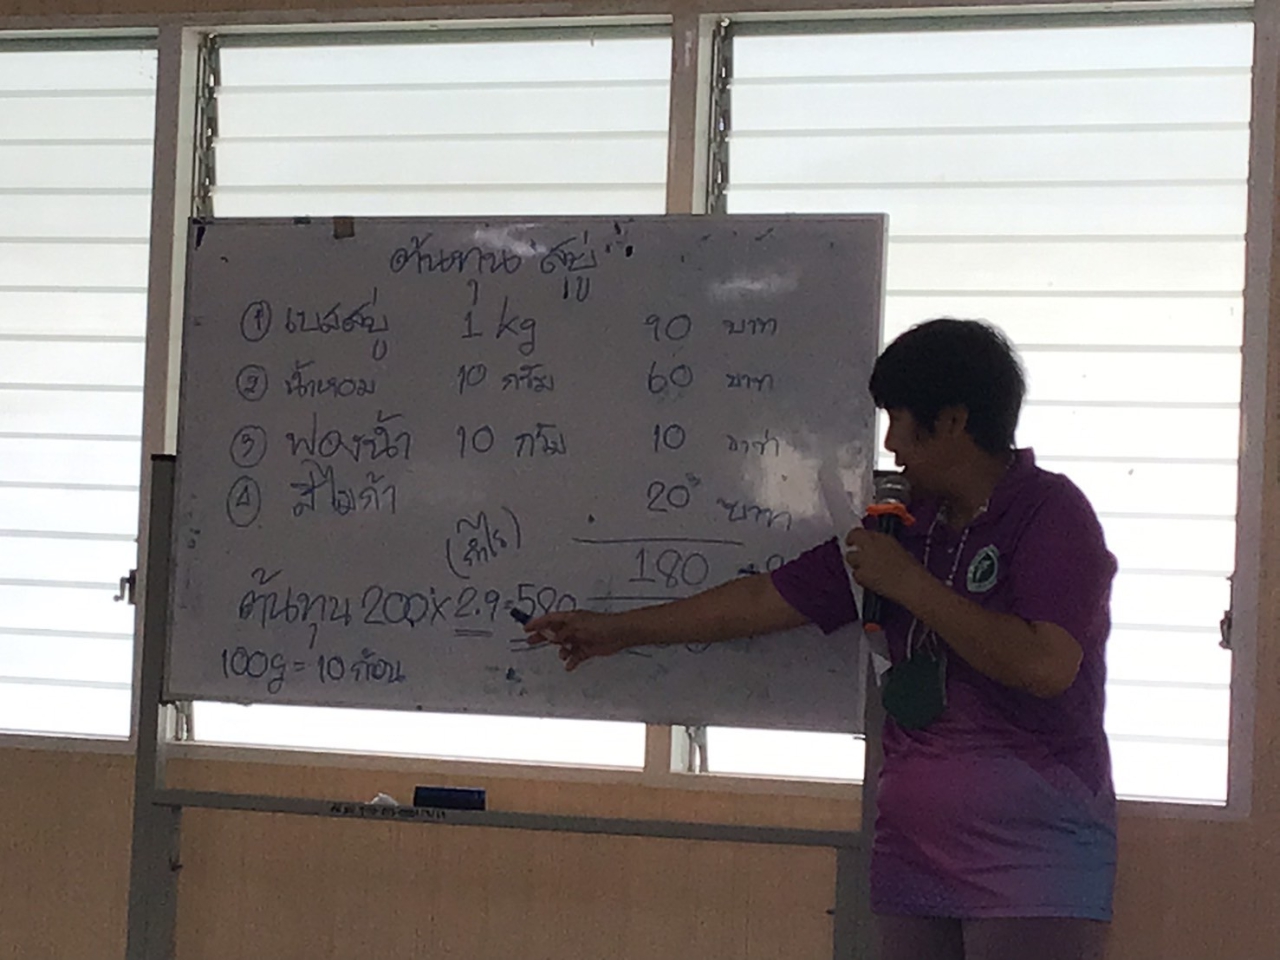 ต้นทุน สบู่
① เบสสบู่ 1 kg 90 บาท
② น้ำหอม 10 กรัม 60 บาท
③ ฟองน้ำ 10 กรัม 10 บาท
④ สีไมก้า 20 บาท
(กำไร)
180
ต้นทุน 200 x 2.9 = 580
100g = 10 ก้อน